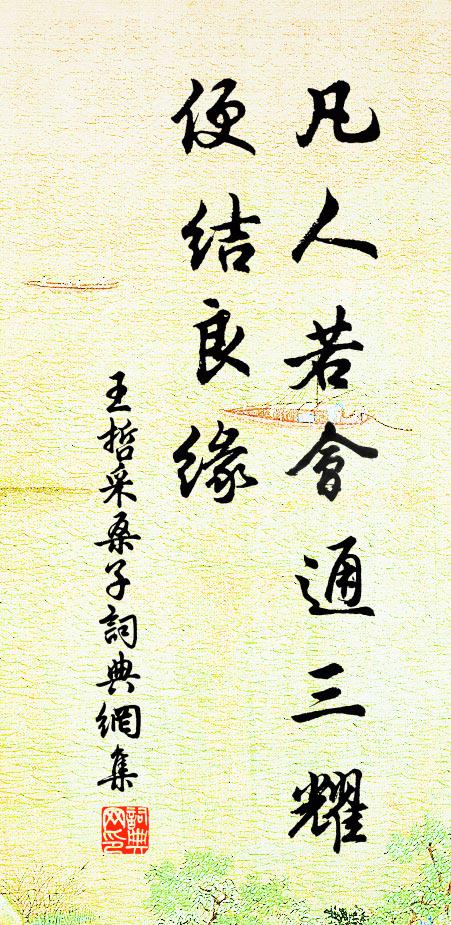 凡人若會通三耀
便結良緣
王哲采桑子詞典網集
詞典网印